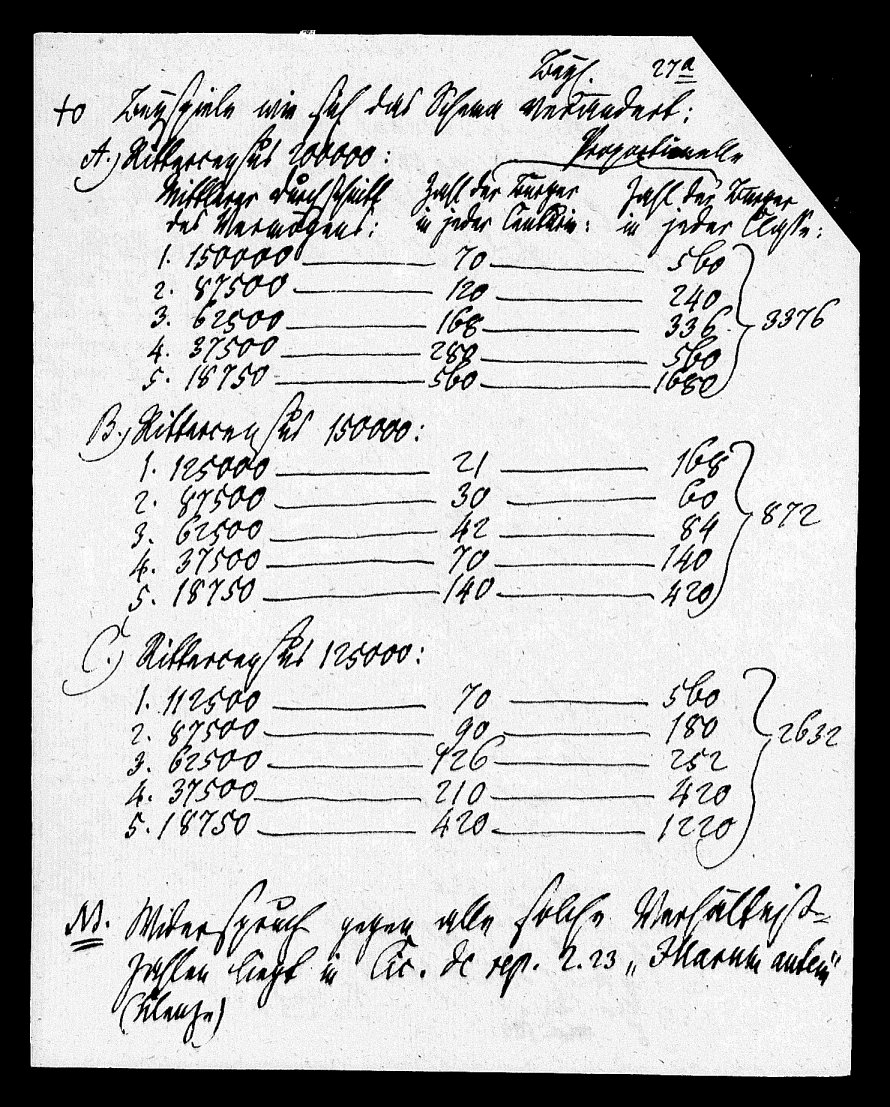 Beyl. 27a
to Beyspiele wie sich das Schema verändert:
A.) Rittercensus 200000: Proportionelle
Mittlerer Durchschnitt Zahl der Bürger Zahl der Bürger
des Vermögens: in jeder Centurie: in jeder Classe:
1. 150000 — 70 — 560
2. 87500 — 120 — 240
3. 62500 — 168 — 336 3376
4. 37500 — 280 — 560
5. 18750 — 560 — 1680
B.) Rittercensus 150000:
1. 125000 — 21 — 168
2. 87500 — 30 — 60
3. 62500 — 42 — 84 872
4. 37500 — 70 — 140
5. 18750 — 140 — 420
C.) Rittercensus 125000:
1. 112500 — 70 — 560
2. 87500 — 90 — 180 2632
3. 62500 — 126 — 252
4. 37500 — 210 — 420
5. 18750 — 420 — 1220
NB. Widerspruch gegen alle solche Verhältniß-
zahlen liegt in Cic. de rep. 2.23 „Illarum autem"
(Klenze)